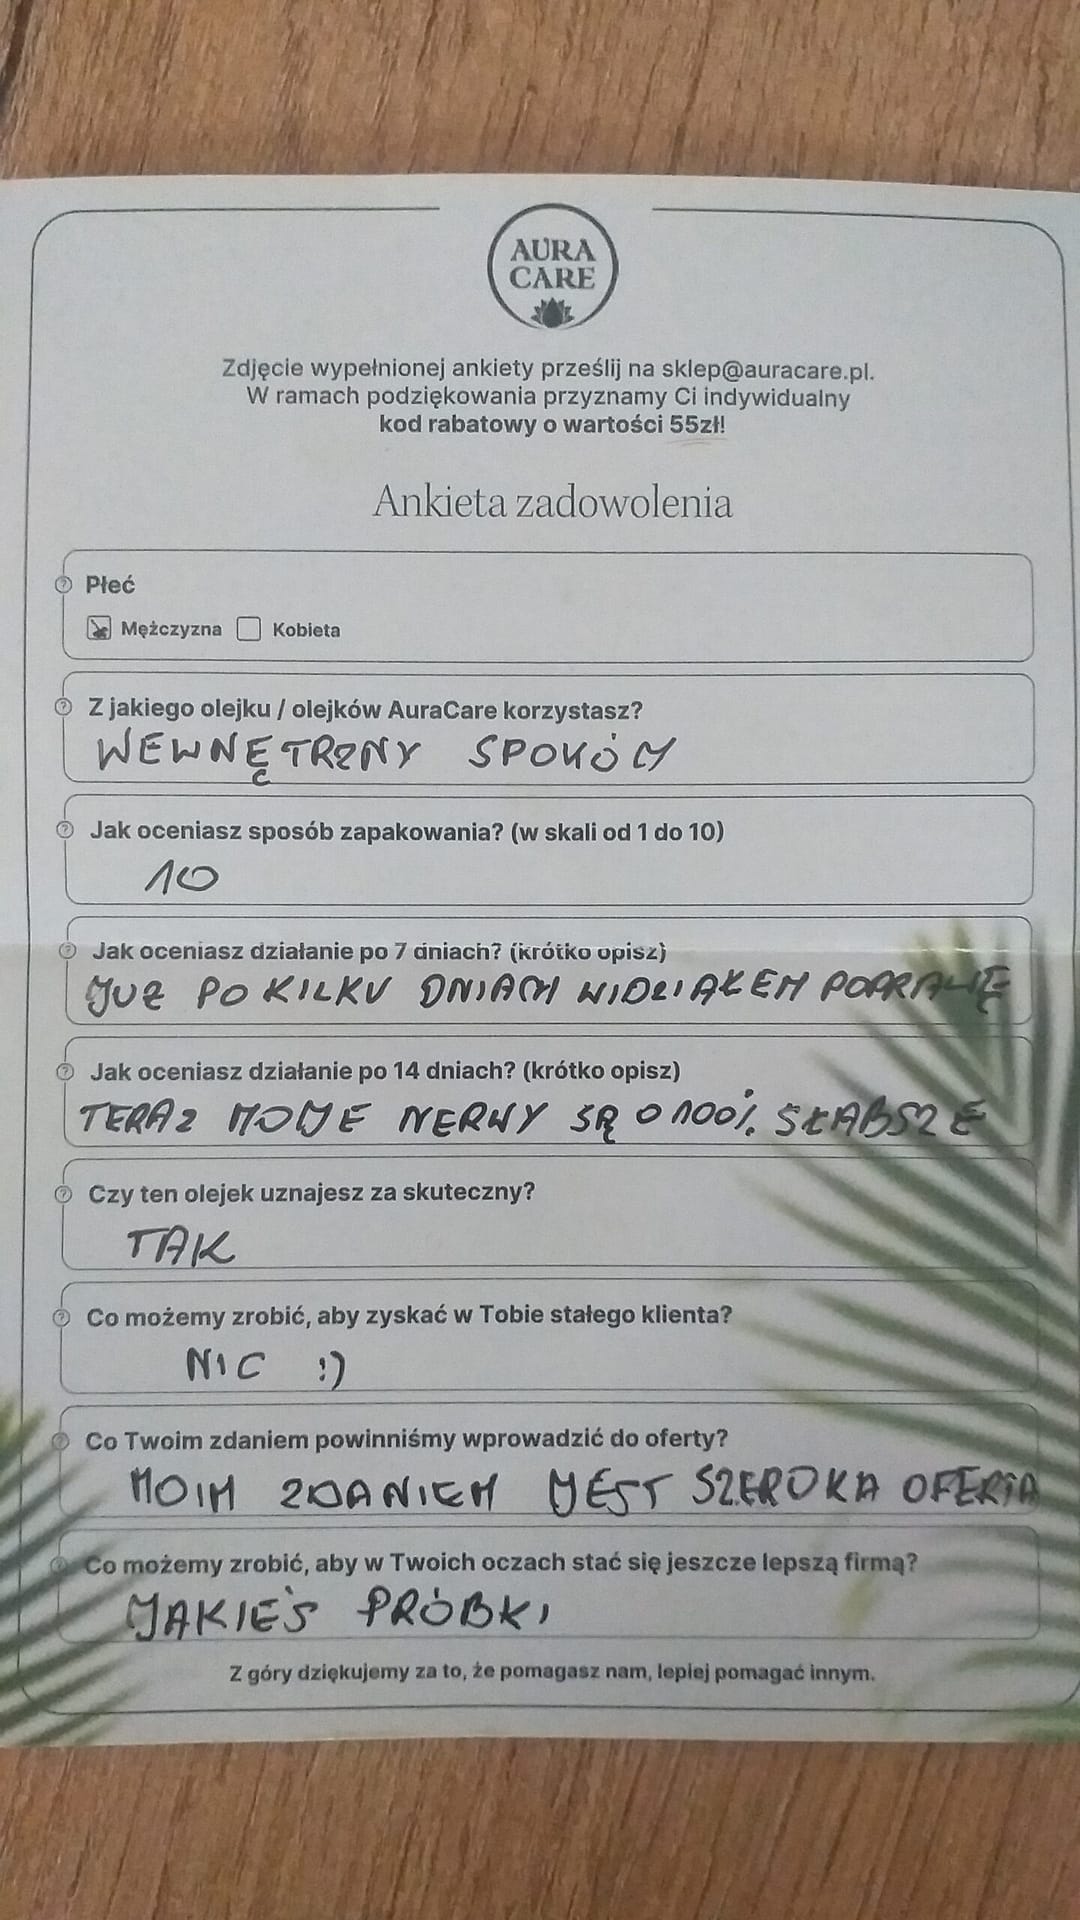 AURA
CARE
Zdjęcie wypełnionej ankiety prześlij na sklep@auracare.pl.
W ramach podziękowania przyznamy Ci indywidualny
kod rabatowy o wartości 55zł!
Ankieta zadowolenia
Płeć
Mężczyzna Kobieta
Z jakiego olejku / olejków AuraCare korzystasz?
WEWNĘTRZNY SPOKÓJ
Jak oceniasz sposób zapakowania? (w skali od 1 do 10)
10
Jak oceniasz działanie po 7 dniach? (krótko opisz)
JUZ PO KILKU DNIACH WIDZIAŁEM POPRAWĘ
Jak oceniasz działanie po 14 dniach? (krótko opisz)
TERAZ MOJE NERWY SĄ O 100% SŁABSZE
Czy ten olejek uznajesz za skuteczny?
TAK
Co możemy zrobić, aby zyskać w Tobie stałego klienta?
NIC :)
Co Twoim zdaniem powinniśmy wprowadzić do oferty?
MOIM ZDANIEM JEST SZEROKA OFERTA
Co możemy zrobić, aby w Twoich oczach stać się jeszcze lepszą firmą?
JAKIEŚ PRÓBKI
Z góry dziękujemy za to, że pomagasz nam, lepiej pomagać innym.